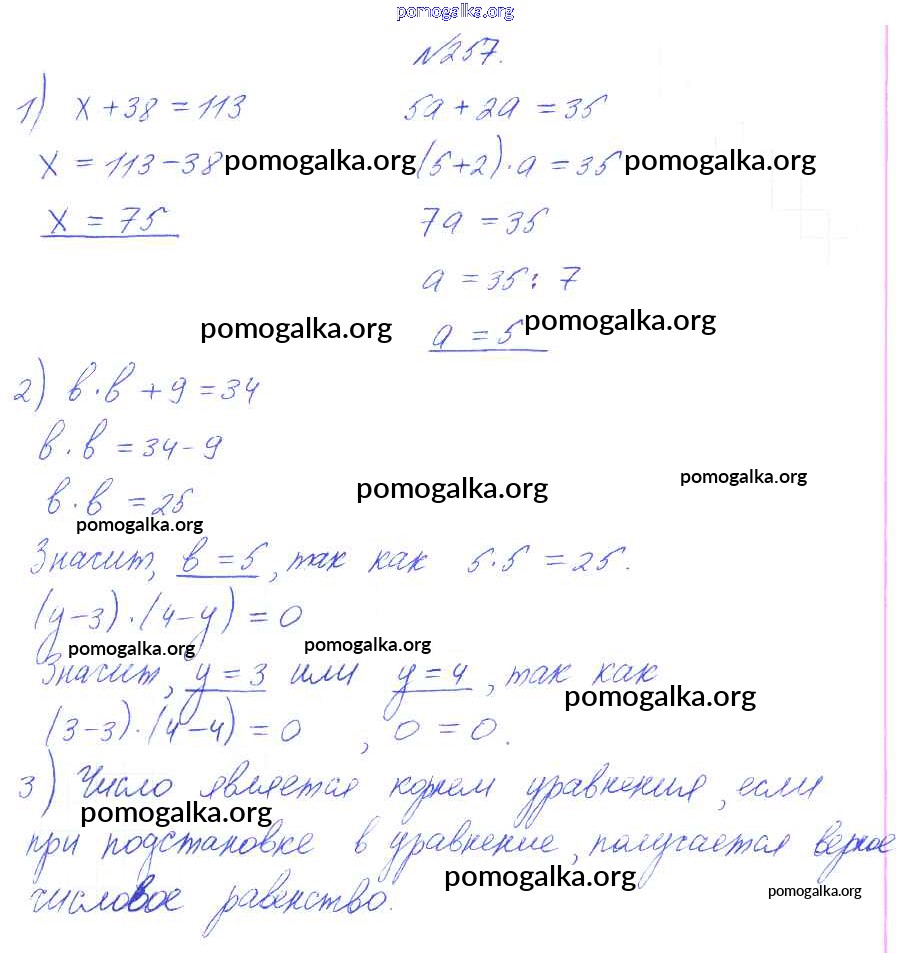 pomogalka.org
№257.
1) x + 38 = 113 5a + 2a = 35
x = 113 - 38 pomogalka.org (5+2)·a = 35 pomogalka.org
x = 75 7a = 35
a = 35 : 7
pomogalka.org a = 5 pomogalka.org
2) в·в + 9 = 34
в·в = 34 - 9
в·в = 25 pomogalka.org pomogalka.org
pomogalka.org
Значит, в = 5, так как 5·5 = 25.
(y-3)·(4-y) = 0
pomogalka.org pomogalka.org
Значит, y = 3 или y = 4, так как
pomogalka.org
(3-3)·(4-4) = 0, 0 = 0.
3) Число является корнем уравнения, если
pomogalka.org
при подстановке в уравнение, получается верное
pomogalka.org pomogalka.org
числовое равенство.